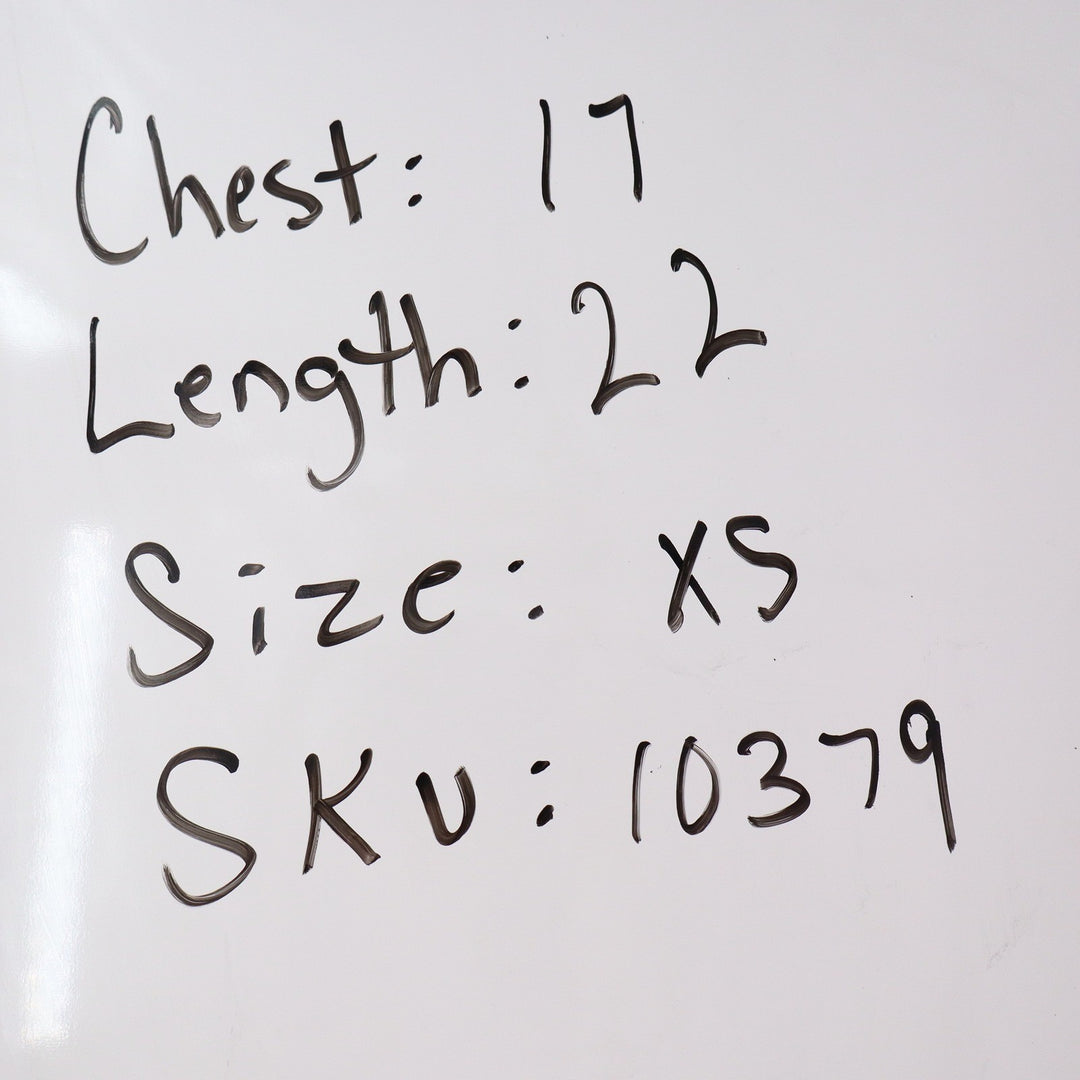 Chest: 17
Length: 22
Size: XS
SKU: 10379